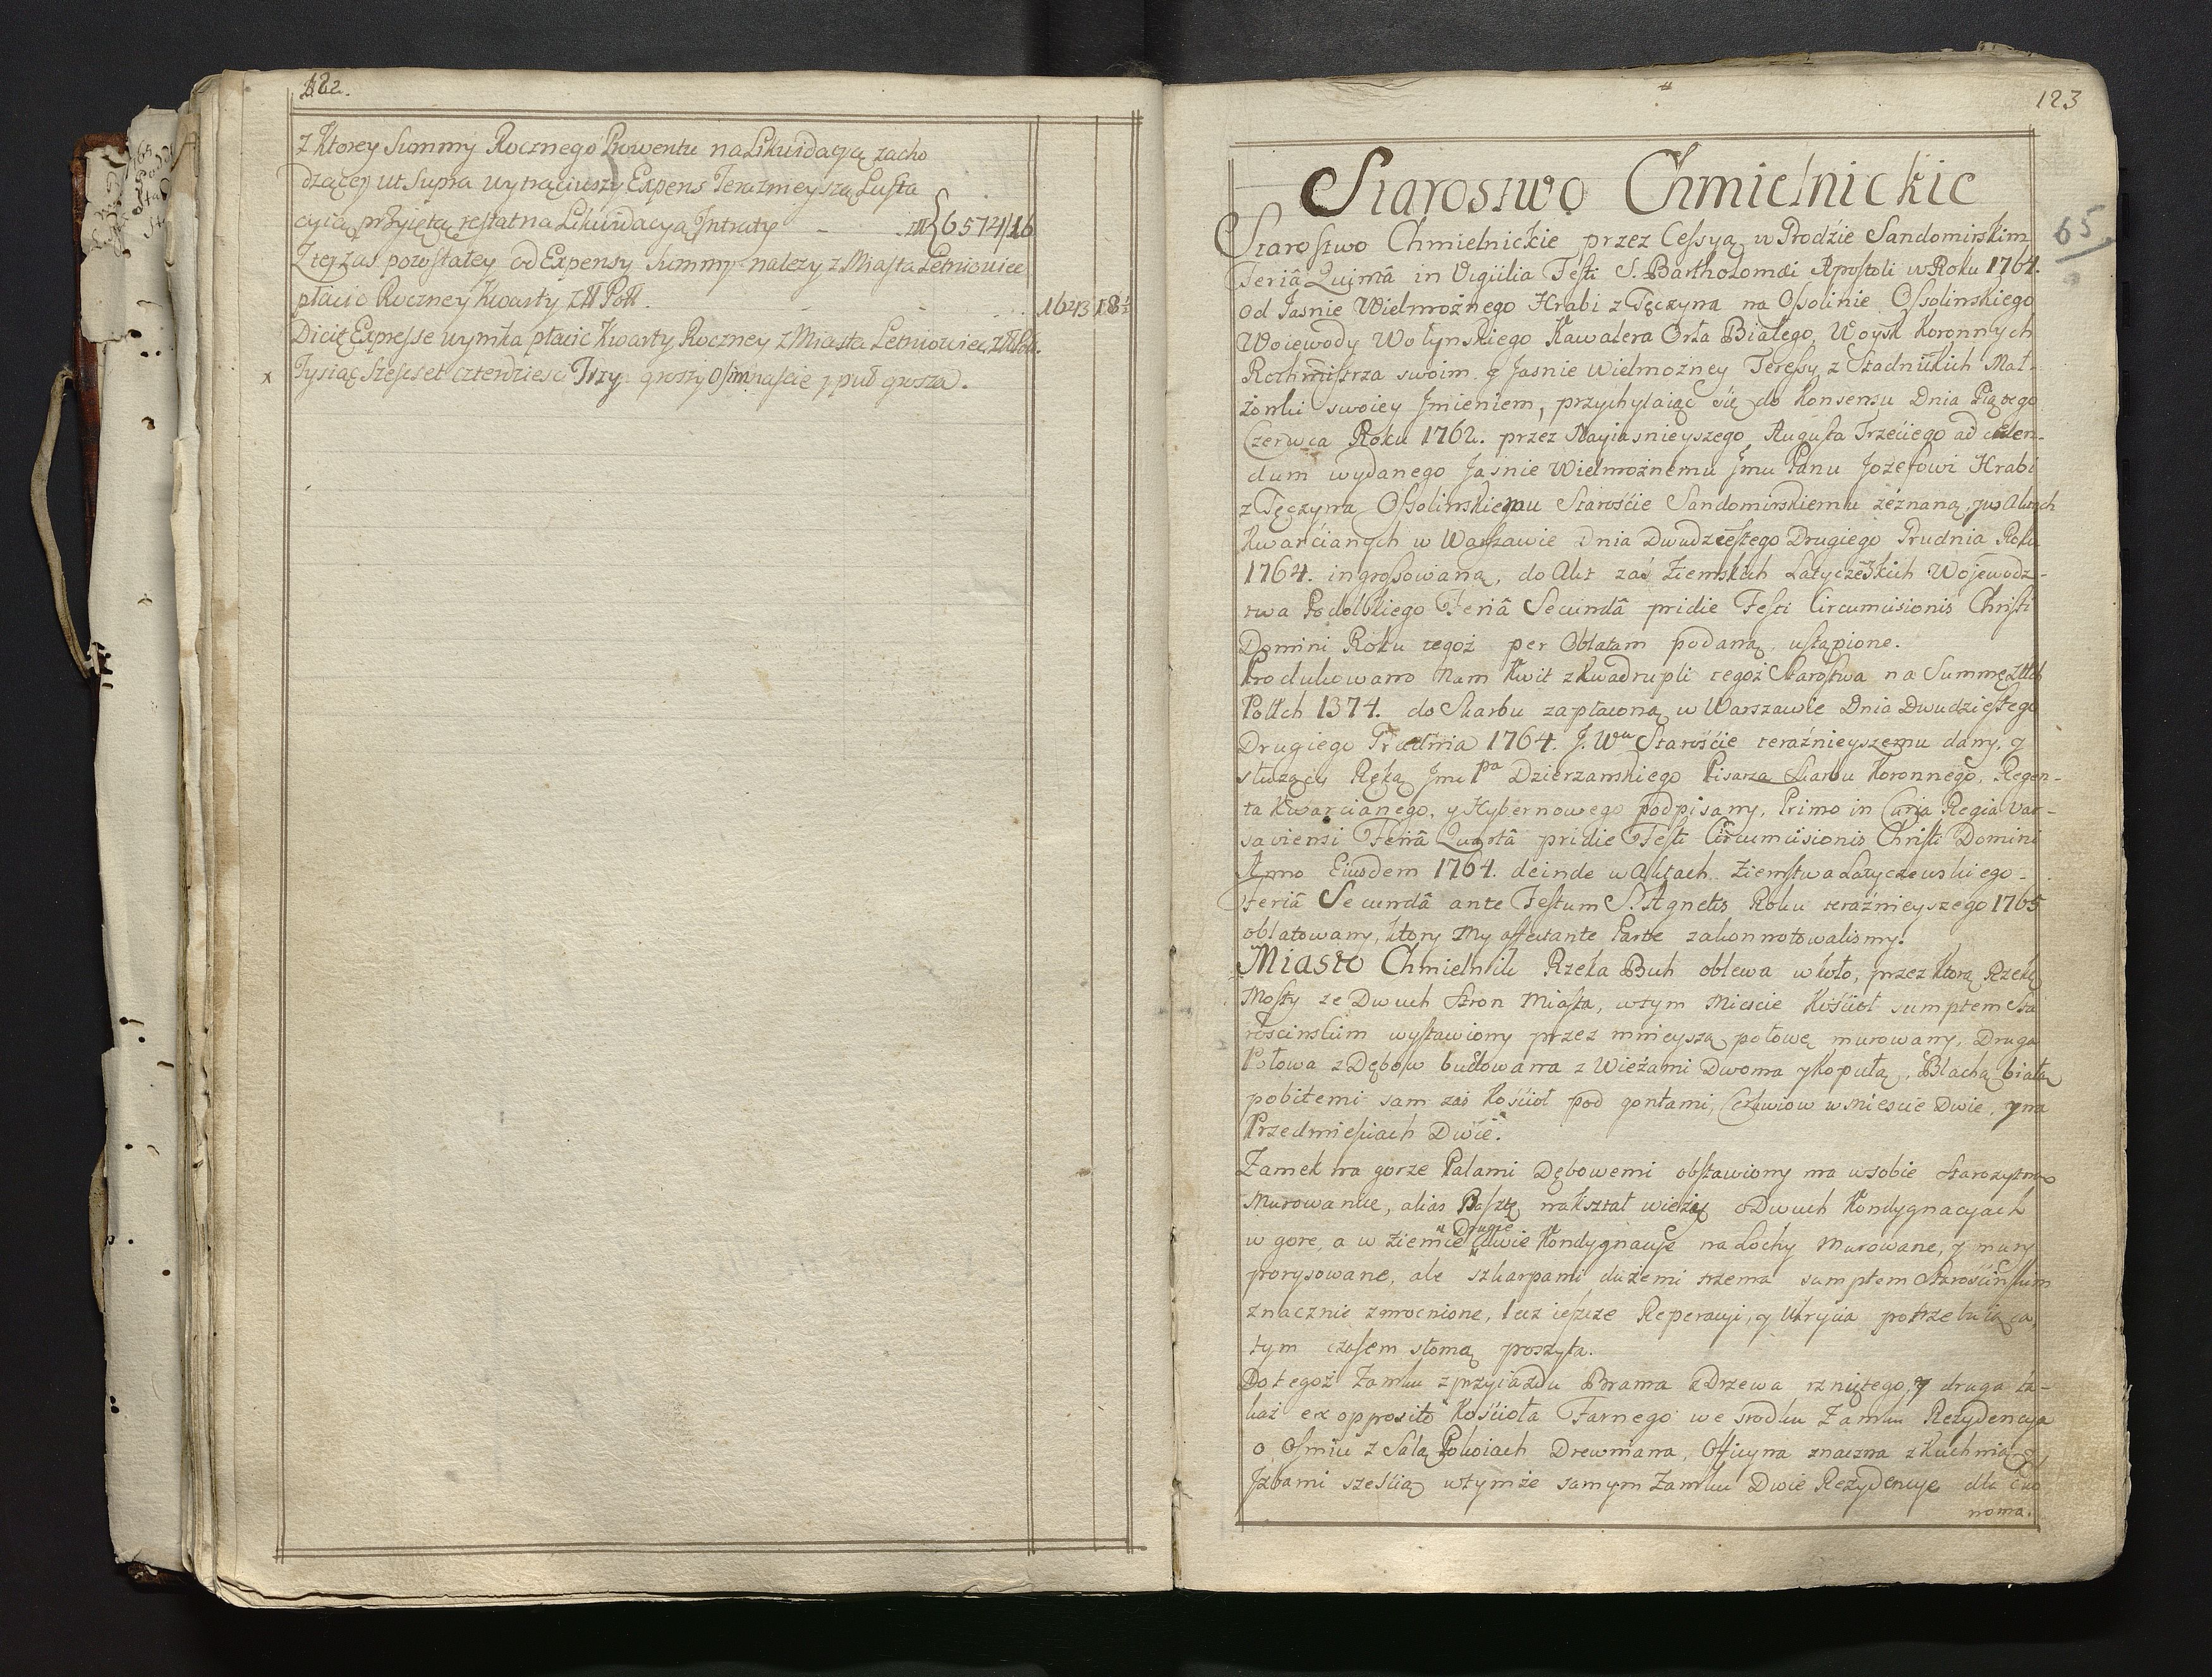 122.
z Ktorey Summy Rocznego Prowentu na Likwidacyą zacho
dzącey ut Supra wytrąciwszy Expens Teraznieyszą Lustra
cyią przyiętą restat na Likwidacyą Intraty - 6574/16
Z tey zas pozostałey od Expensy Summy nalezy z Miasta Letniowiec
płacic Roczney Kwarty Złł Poll. 1643 18½
Dicit Expresse wynika płacic Kwarty Roczney z Miasta Letniowiec Zł Pol.
x Tysiąc Szescset czterdziesci Trzy groszy Osimnascie y puł grosza.
123
65
Starostwo Chmielnickie
Starostwo Chmielnickie przez Cessyą w Grodzie Sandomirskim
Feriâ Quintâ in Vigilia Festi S. Bartholomæi Apostoli w Roku 1764.
od Jasnie Wielmożnego Hrabi z Tęczyna na Ossolinie Ossolinskiego
Woiewody Wołynskiego Kawalera Orła Białego, Woysk Koronnych
Rothmistrza swoim y Jasnie Wielmozney Teressy z Stadnickich Mał-
żonki swoiey Jmieniem, przychylaiąc się do Konsensu Dnia Piątego
Czerwca Roku 1762. przez Nayiasnieyszego Augusta Trzeciego ad ceden-
dum wydanego Jasnie Wielmożnemu Jmu Panu Jozefowi Hrabi
z Tęczyna Ossolinskiemu Starośćie Sandomirskiemu zeznaną, y w Aktach
Kwarćianych w Warszawie dnia Dwudziestego Drugiego Grudnia Roku
1764. ingrossowaną, do Akt zaś Ziemskich Latyczewskich Wojewodz-
twa Podolskiego Feriâ Secundâ pridie Festi Circumcisionis Christi
Domini Roku tegoż per Oblatam podaną, ustąpione.
Produkowano Nam Kwit z Kwadrupli tegoż Starostwa na Summę złłch
Pollch 1374. do Skarbu zapłaconą w Warszawie Dnia Dwudziestego
Drugiego Grudnia 1764. J. Wu Starośćie teraźnieyszemu dany, y
służący Ręką Jmć Pa Dzierzanskiego Pisarza Skarbu Koronnego, Regen-
ta Kwarcianego, y Hybernowego podpisany, Primo in Curia Regia Var-
saviensi Feriâ Quartâ pridie Festi Circumcisionis Christi Domini
Anno Eiusdem 1764. deinde w Aktach Ziemstwa Latyczewskiego
Feriâ Secundâ ante Festum S. Agnetis Roku teraźnieyszego 1765
oblatowany, ktory My affectante Parte zakonnotowalismy.
Miasto Chmielnik Rzeka Buh oblewa w koło, przez ktorą Rzekę
Mosty ze Dwuch stron Miasta, w tym Miescie Kościoł sumptem Sta
rościnskim wystawiony przez mnieyszą połowę murowany, Druga
Połowa z Dębow budowana z Wieżami Dwoma y Kopułą, Blachą białą
pobitemi sam zaś Kościoł pod gontami, Cerkwiow w Miescie Dwie, y na
Przedmiesciach Dwie.
Zamek na gorze Palami Dębowemi obstawiony ma w sobie Starozytne
Murowanie, alias Basztę na kształ wieży o Dwuch Kondygnacyach
w gore, a w ziemie Drugie dwie Kondygnacye na Lochy Murowane, y mury
porysowane, ale szkarpami dużemi trzema sumptem Starościńskim
znacznie zmocnione, lecz ieszcze Reperacyi, y Ukrycia potrzebuiąca,
tym czasem słomą poszyta.
Do tegoż Zamku z przyiazdu Brama z Drzewa rzniętego, y druga ta-
każ ex opposito Kościoła Farnego we srodku Zamku Rezydencya
o Osmiu z Salą Pokoiach Drewniana, Officyna znaczna z Kuchnią y
Izbami sześcią w tymże samym Zamku Dwie Rezydencye dla Eko
noma.